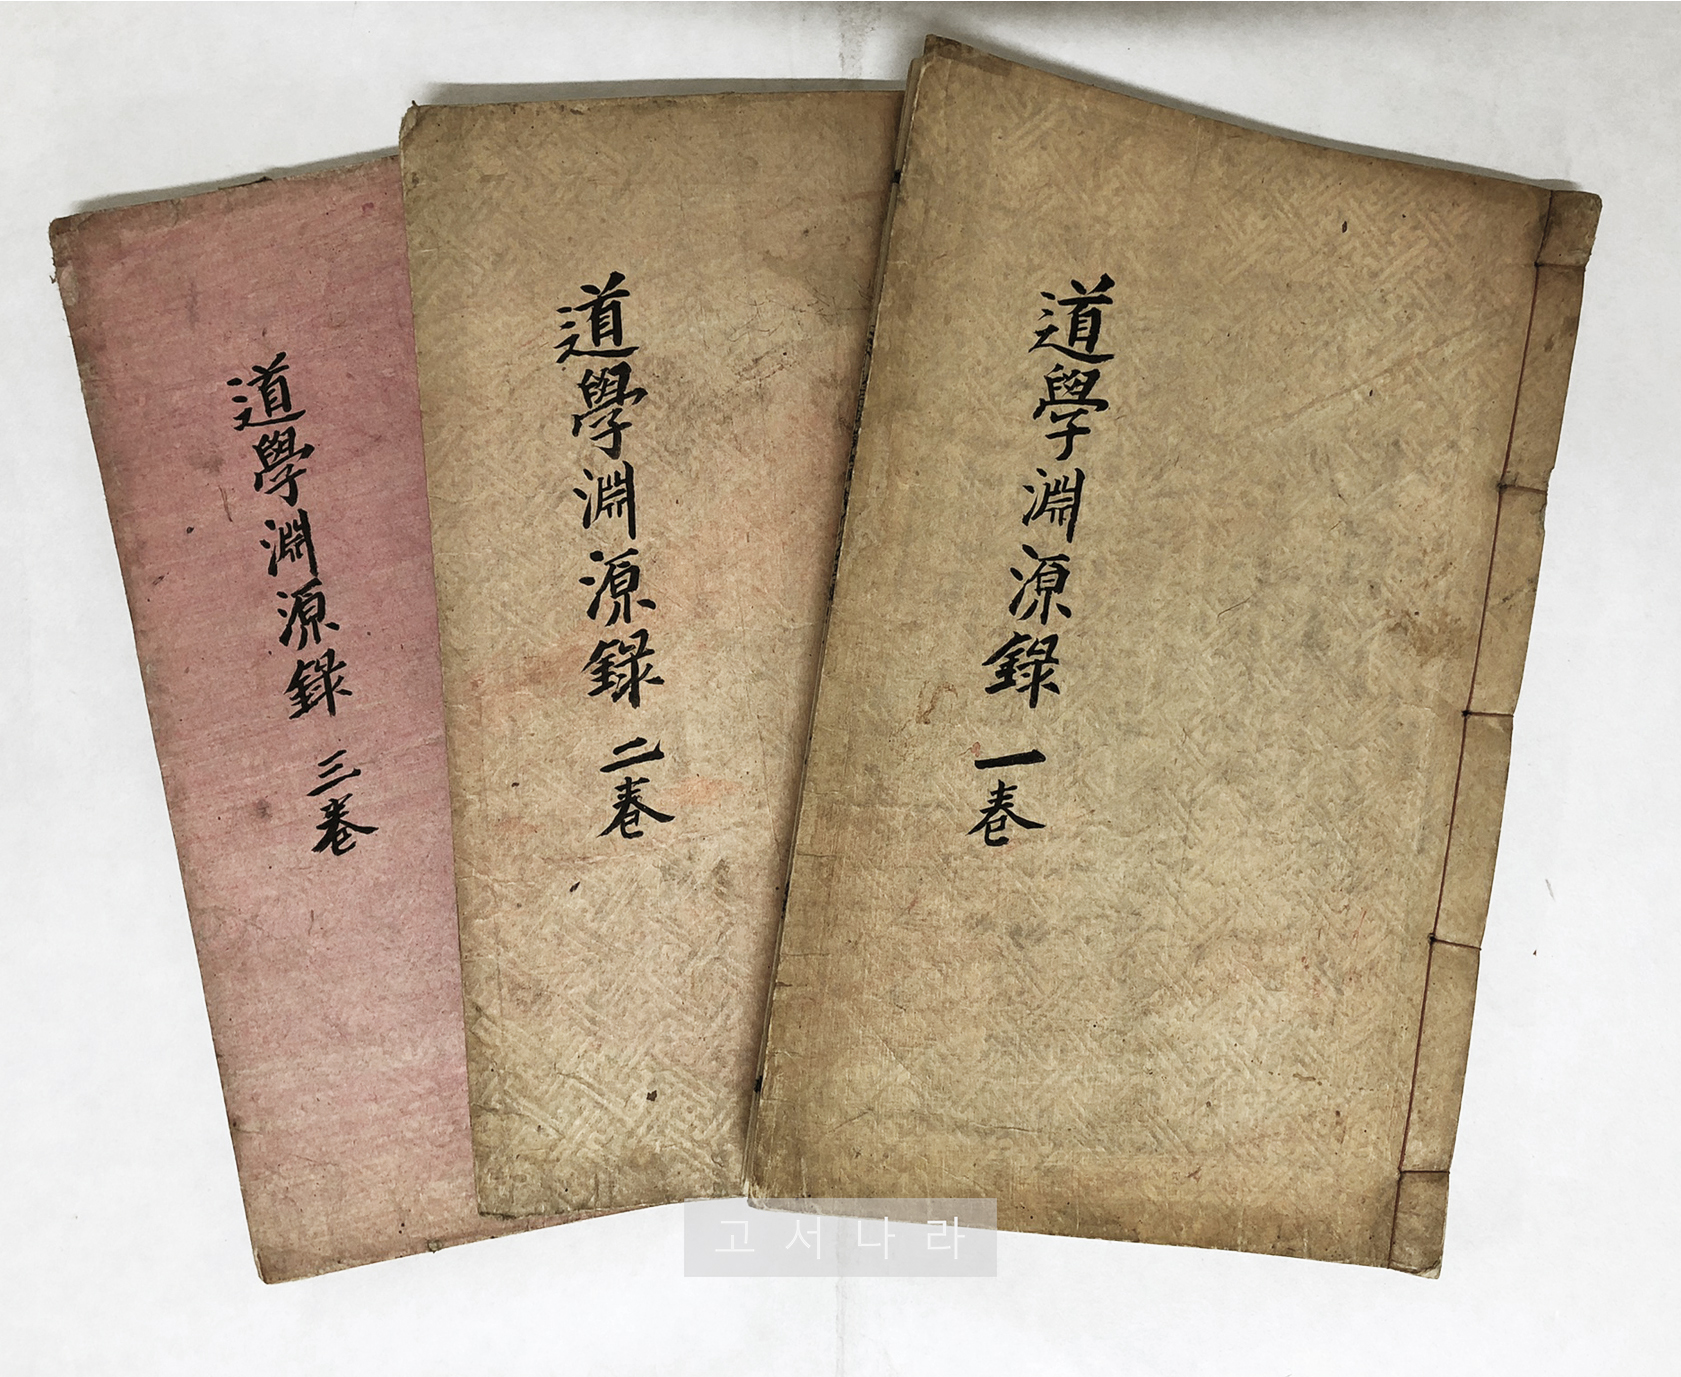 道學淵源錄 一卷
道學淵源錄 二卷
道學淵源錄 三卷
고서나라